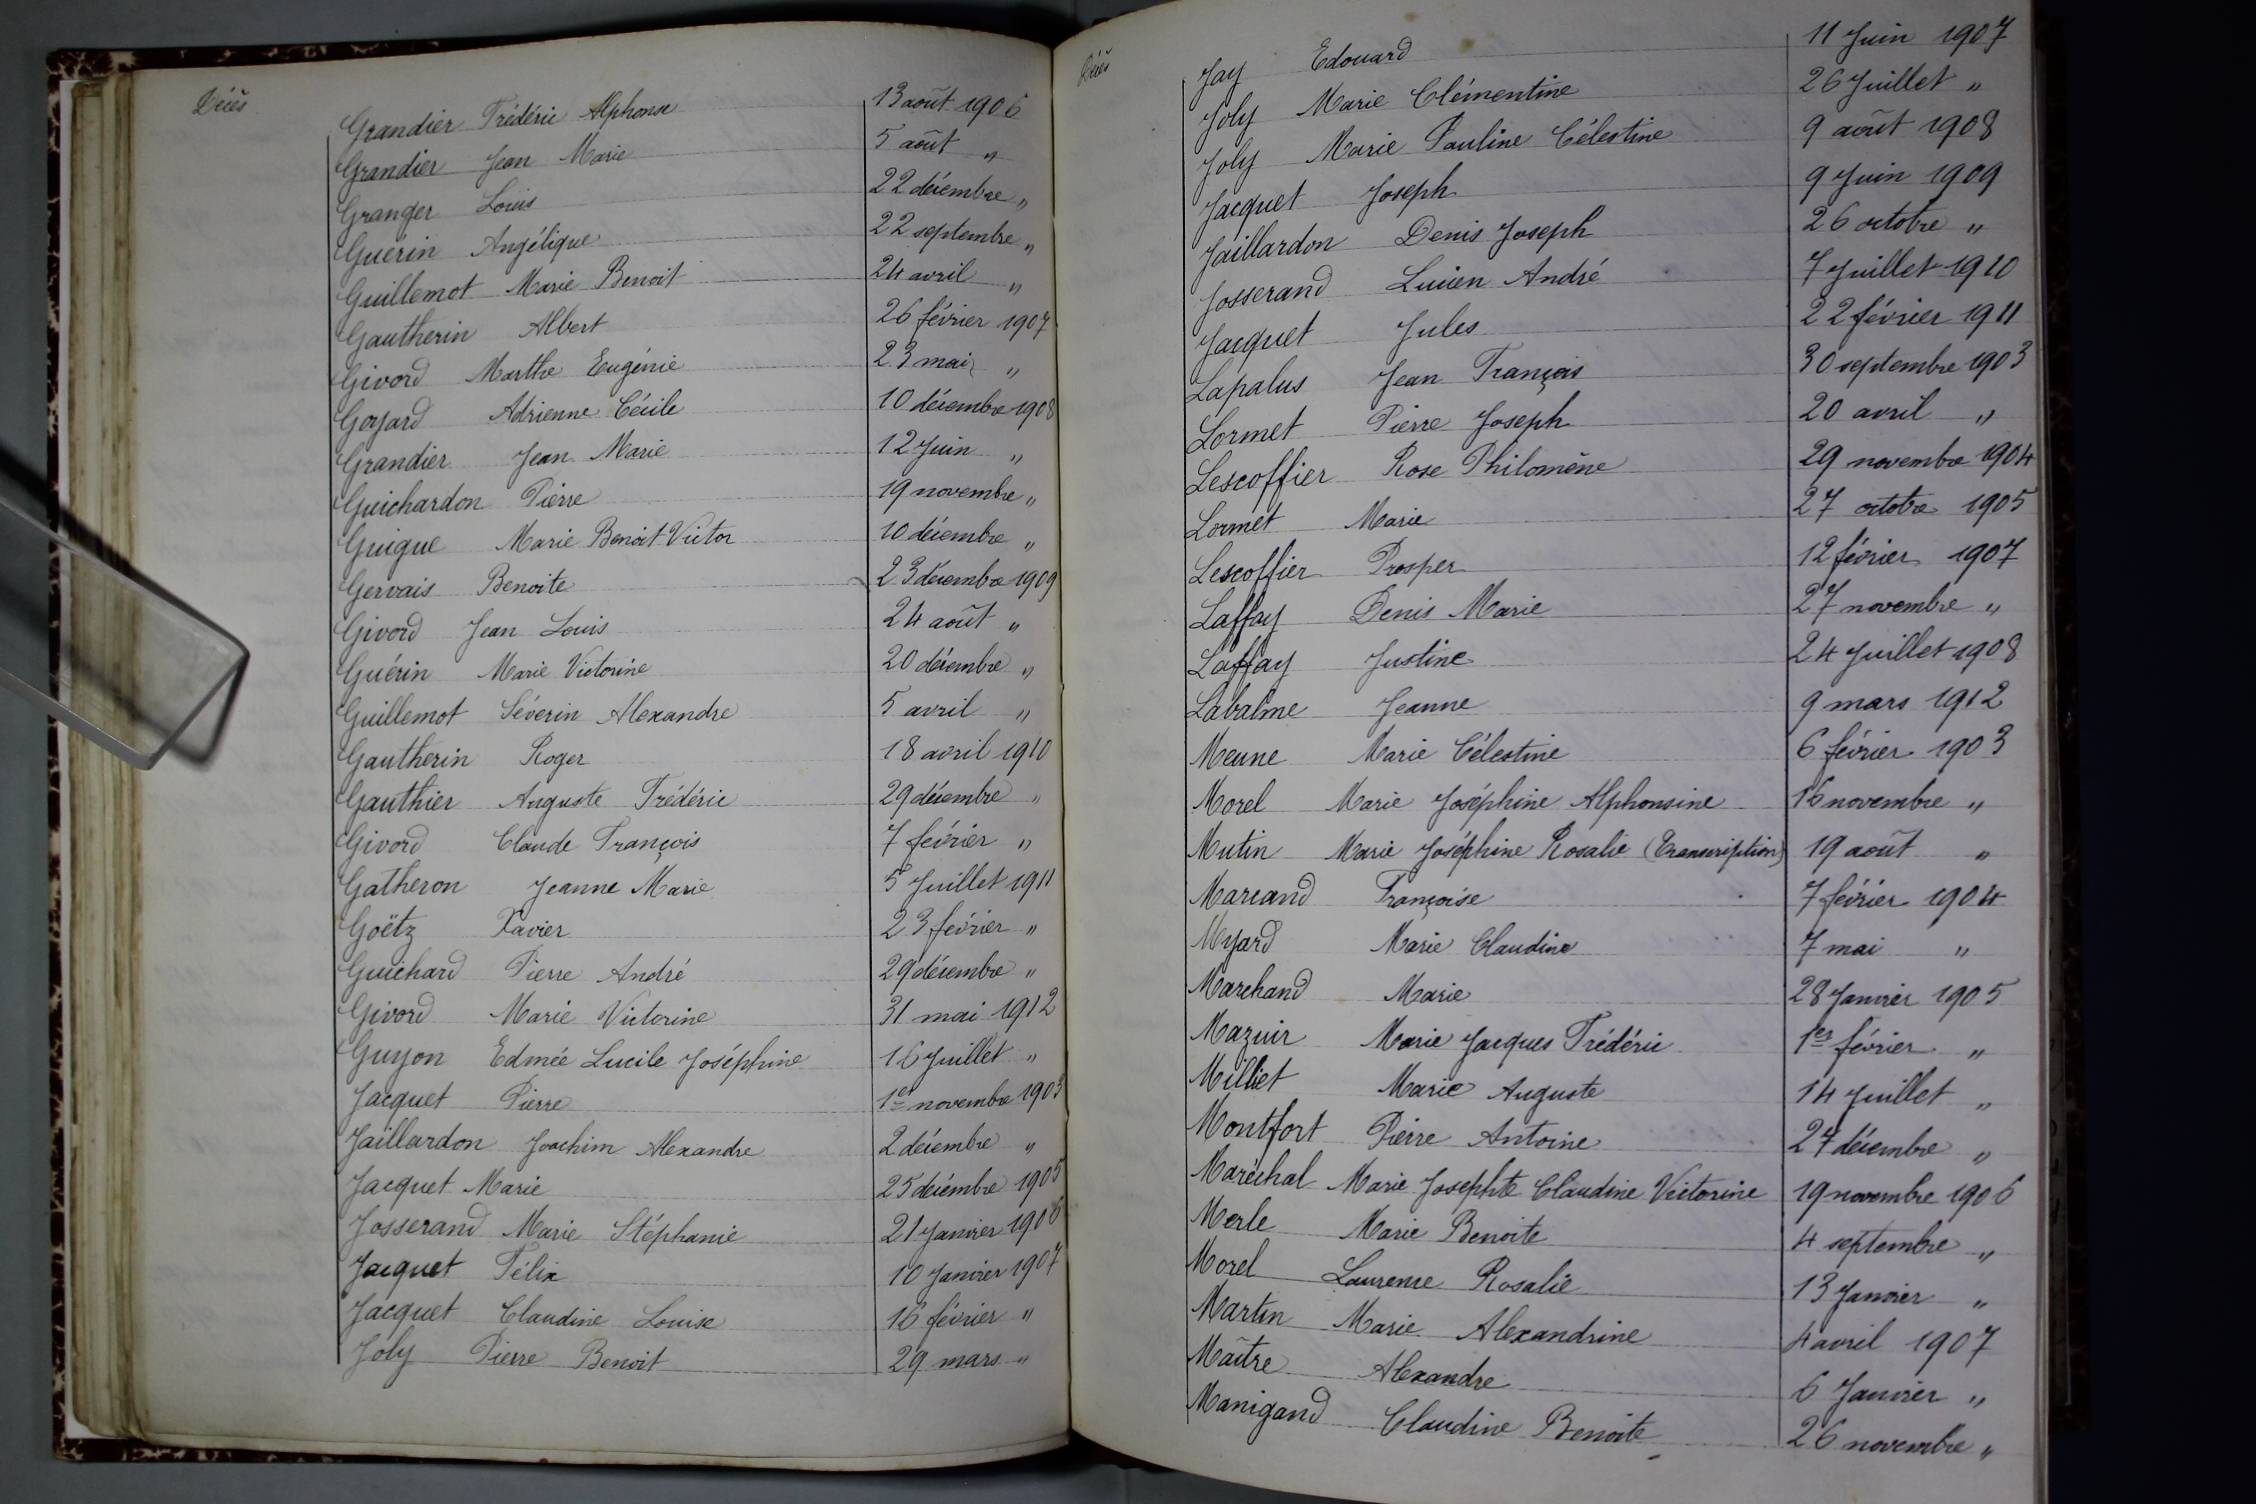 Décès
Grandier Frédéric Alphonse 13 août 1906
Grandier Jean Marie 5 août "
Granger Louis 22 décembre "
Guérin Angélique 22 septembre "
Guillemot Marie Benoit 24 avril "
Gautherin Albert 26 février 1907
Givord Marthe Eugénie 23 mai "
Goyard Adrienne Cécile 10 décembre 1908
Grandier Jean Marie 12 Juin "
Guichardon Pierre 19 novembre "
Guigue Marie Benoit Victor 10 décembre "
Gervais Benoite 23 décembre 1909
Givord Jean Louis 24 août "
Guérin Marie Victorine 20 décembre "
Guillemot Séverin Alexandre 5 avril "
Gautherin Roger 18 avril 1910
Gauthier Auguste Frédéric 29 décembre "
Givord Claude François 7 février "
Gatheron Jeanne Marie 5 Juillet 1911
Goëtz Xavier 23 février "
Guichard Pierre André 29 décembre "
Givord Marie Victorine 31 mai 1912
Guyon Edmée Lucile Joséphine 16 Juillet "
Jacquet Pierre 1er novembre 1903
Jaillardon Joachim Alexandre 2 décembre "
Jacquet Marie 25 décembre 1905
Josserand Marie Stéphanie 21 Janvier
Jacquet Félix 10 Janvier 1907
Jacquet Claudine Louise 16 février "
Joly Pierre Benoit 29 mars "
Décès
Jay Edouard 11 Juin 1907
Joly Marie Clémentine 26 Juillet "
Joly Marie Pauline Célestine 9 août 1908
Jacquet Joseph 9 Juin 1909
Jaillardon Denis Joseph 26 octobre "
Josserand Lucien André 7 Juillet 1910
Jacquet Jules 22 février 1911
Lapalus Jean François 30 septembre 1903
Lormet Pierre Joseph 20 avril "
Lescoffier Rose Philomène 29 novembre 1904
Lormet Marie 27 octobre 1905
Lescoffier Prosper 12 février 1907
Laffay Denis Marie 27 novembre "
Laffay Justine 24 Juillet 1908
Labalme Jeanne 9 mars 1912
Meune Marie Célestine 6 février 1903
Morel Marie Joséphine Alphonsine 16 novembre "
Mutin Marie Joséphine Rosalie (Transcription) 19 août "
Marcand Françoise 7 février 1904
Myard Marie Claudine 7 mai "
Marchand Marie 28 Janvier 1905
Mazuir Marie Jacques Frédéric 1er février "
Milliet Marie Auguste 14 Juillet "
Montfort Pierre Antoine 27 décembre "
Maréchal Marie Josephte Claudine Victorine 19 novembre 1906
Merle Marie Benoite 4 septembre "
Morel Laurence Rosalie 13 Janvier "
Martin Marie Alexandrine 4 avril 1907
Maître Alexandre 6 Janvier "
Manigand Claudine Benoite 26 novembre "